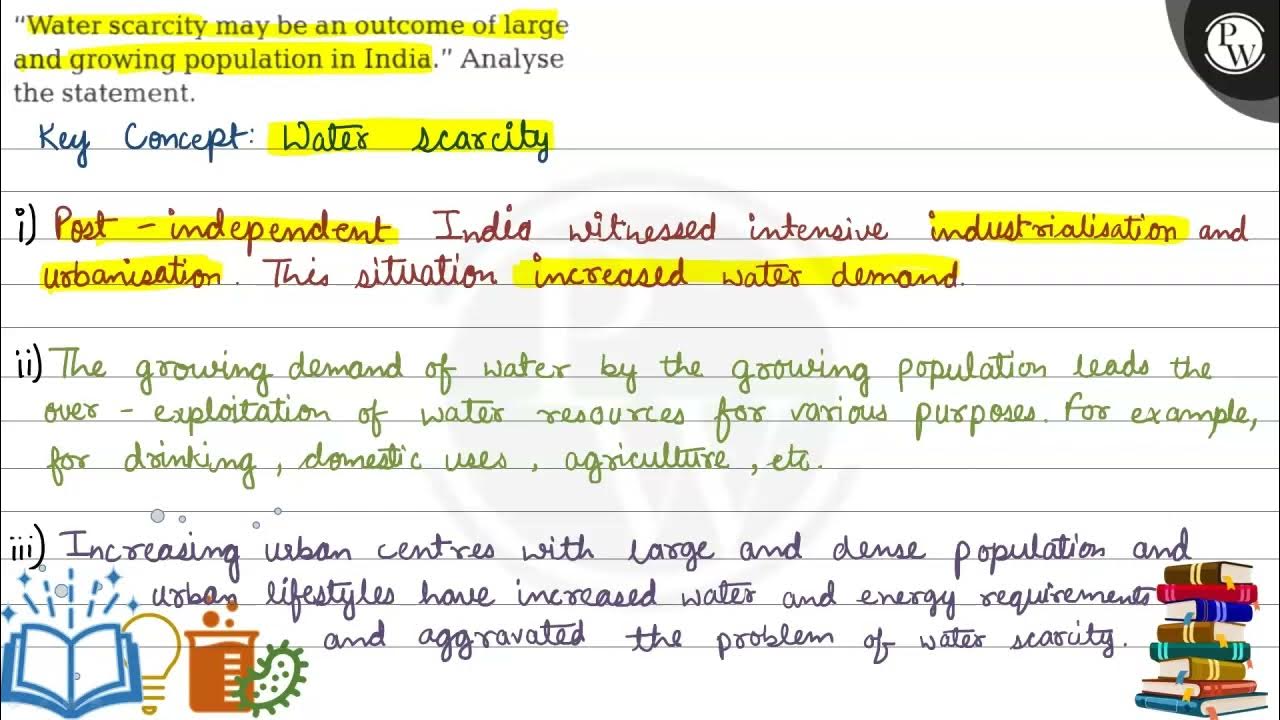 “Water scarcity may be an outcome of large
and growing population in India.” Analyse
the statement.
PW
Key Concept: Water scarcity
i) Post - independent India witnessed intensive industrialisation and
urbanisation. This situation increased water demand.
ii) The growing demand of water by the growing population leads the
over - exploitation of water resources for various purposes. For example,
for drinking, domestic uses, agriculture, etc.
iii) Increasing urban centres with large and dense population and
urban lifestyles have increased water and energy requirements
and aggravated the problem of water scarcity.
PW